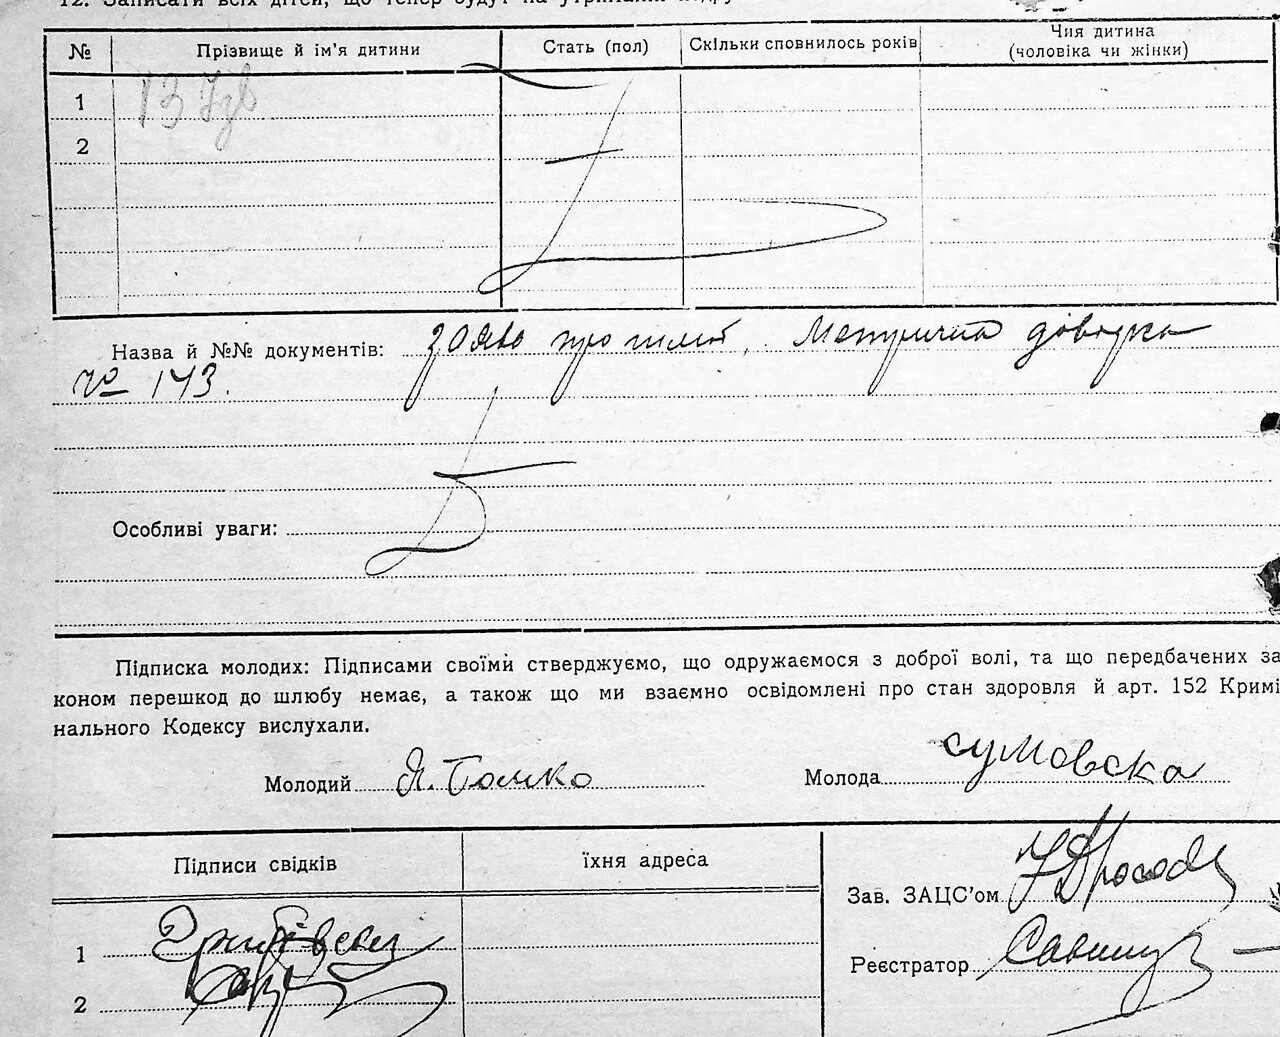 12. Записати всіх дітей, що тепер будуть на утриманні подру
№ Прізвище й ім'я дитини Стать (пол) Скільки сповнилось років Чия дитина (чоловіка чи жінки)
1
2
Назва й №№ документів: заява про шлюб, Метрична довідка
№ 143.
Особливі уваги:
Підписка молодих: Підписами своїми стверджуємо, що одружаємося з доброї волі, та що передбачених за
коном перешкод до шлюбу немає, а також що ми взаємно освідомлені про стан здоровля й арт. 152 Кримі
нального Кодексу вислухали.
Молодий Я. Бомко Молода Сумовска
Підписи свідків їхня адреса
Зав. ЗАЦС'ом
1
Реєстратор
2